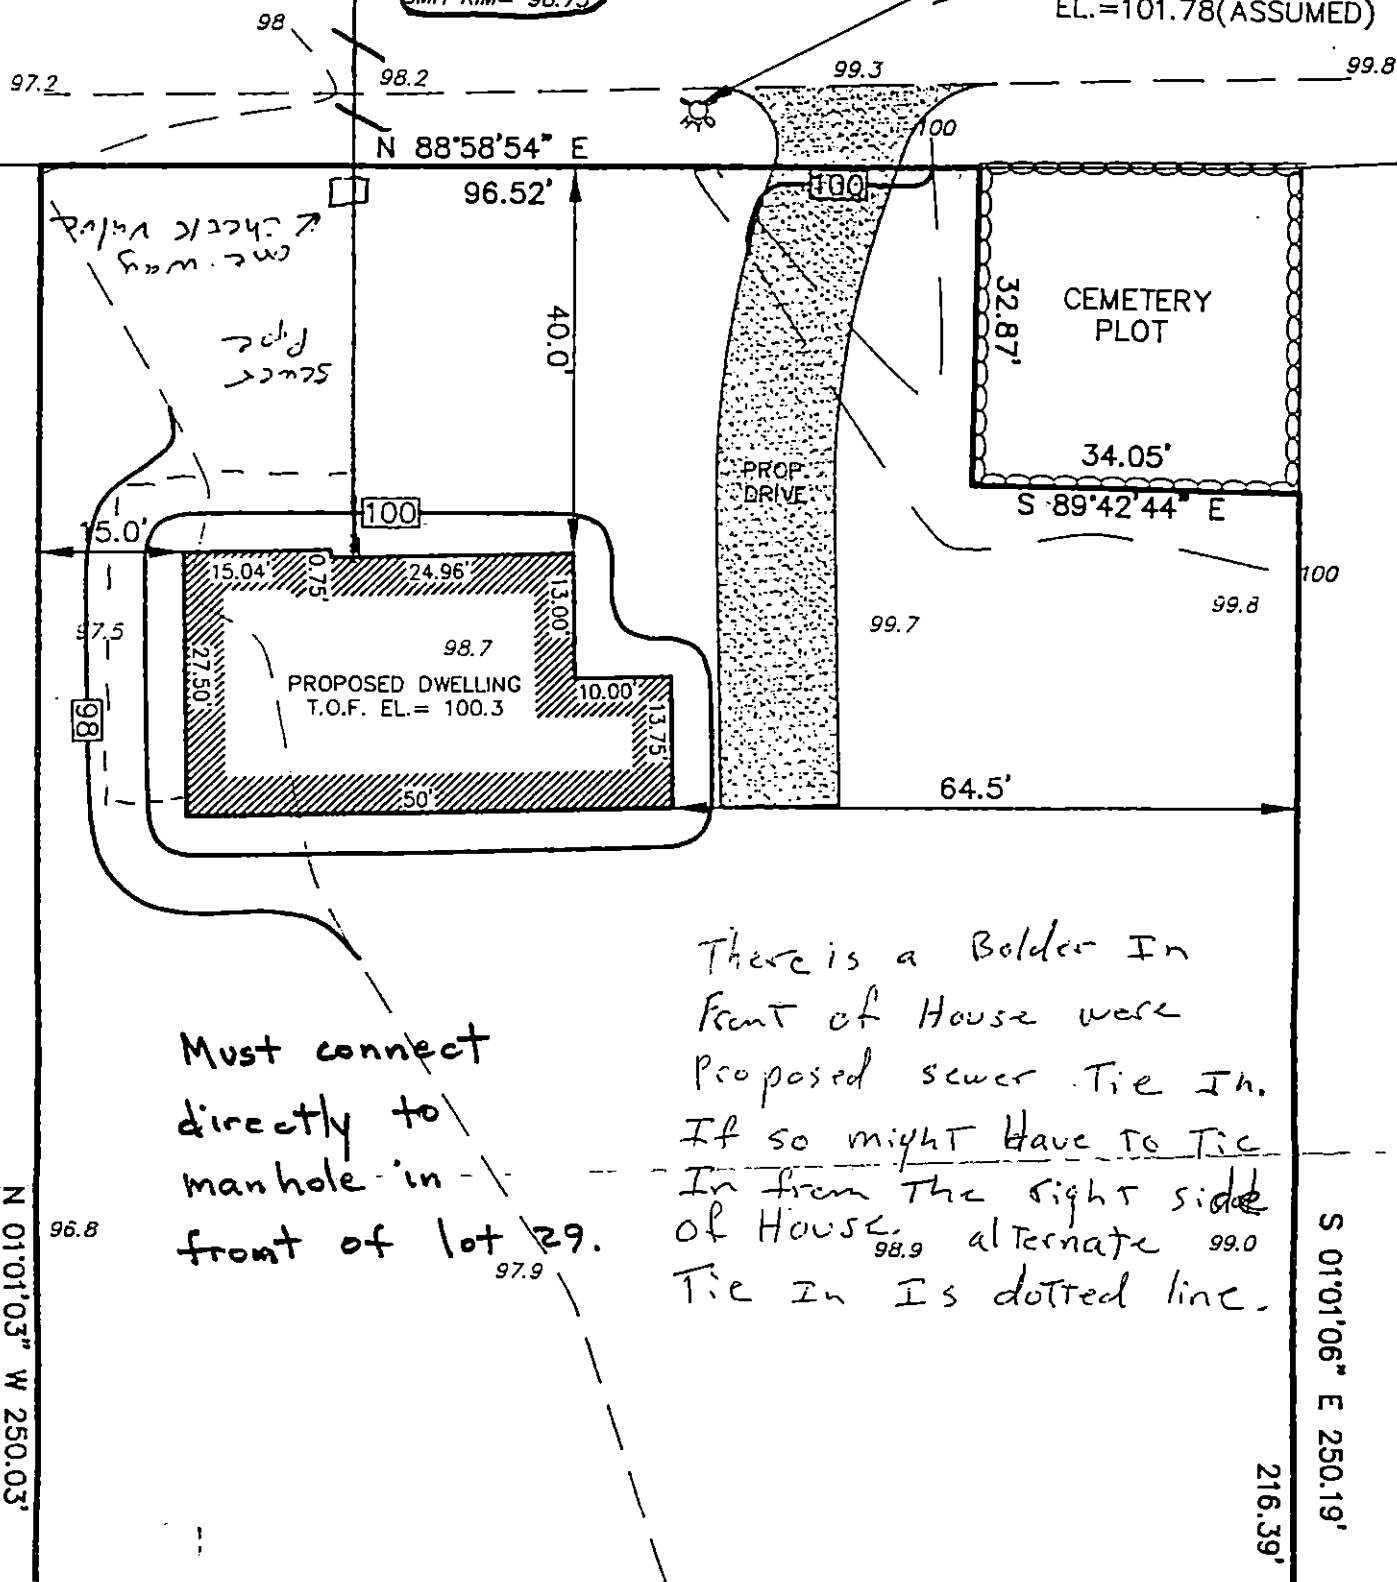 SMH RIM= 98.75
EL.=101.78(ASSUMED)
98
97.2
98.2
99.3
99.8
100
N 88°58'54" E
96.52'
100
one way
check valve
sewer
pipe
40.0'
32.87'
CEMETERY
PLOT
34.05'
S 89°42'44" E
PROP
DRIVE
100
15.0'
15.04'
0.75'
24.96'
13.00'
100
99.8
99.7
97.5
27.50'
98.7
PROPOSED DWELLING
T.O.F. EL.= 100.3
10.00'
13.75'
98
50'
64.5'
There is a Bolder In
Front of House were
Proposed sewer Tie In.
If so might Have To Tie
In from The right side
of House. alternate
Tie In Is dotted line.
Must connect
directly to
manhole in
front of lot 29.
96.8
98.9
99.0
97.9
N 01°01'03" W 250.03'
S 01°01'06" E 250.19'
216.39'